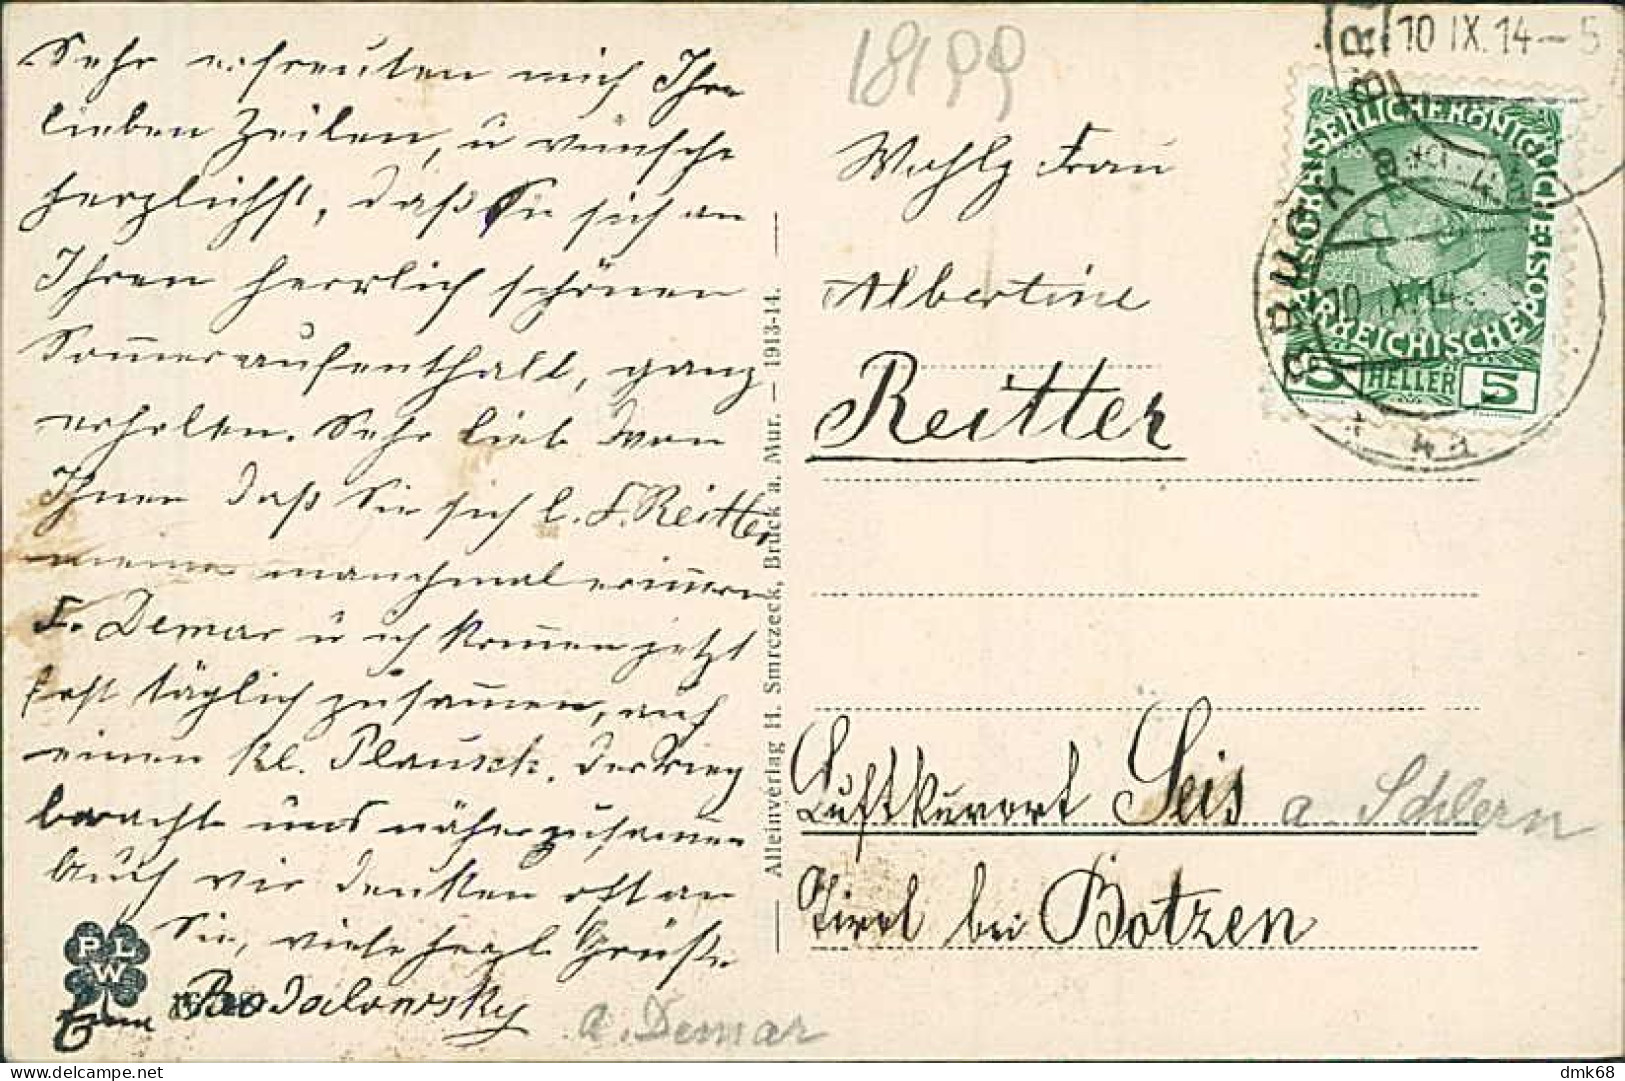 Sehr erfreuten mich Ihre
lieben Zeilen, u wünsche
herzlichst, daß Sie sich an
Ihren herrlich schönen
Sommeraufenthalt, ganz
erholen. Sehr lieb von
Ihnen daß Sie sich l. F. Reitter
meiner manchmal erinnern
F. Demar u ich kommen jetzt
fast täglich zusammen, auf
einen kl. Plausch. Der Krieg
brachte uns näher zusammen
Auch wir denken oft an
Sie, viele herzl. Grüße
Podolowsky
a. Demar
PLW
Alleinverlag H. Smrczeck, Bruck a. Mur. — 1913-14.
18199
Wohlg Frau
Albertine
Reitter
Luftkurort Seis a. Schlern
Tirol bei Botzen
BRUCK
10 IX.14-5
KAISERLICHE KÖNIGLICHE ÖSTERREICHISCHE POST
5 HELLER 5
BRUCK
10 IX.14
* 4a
dmk68